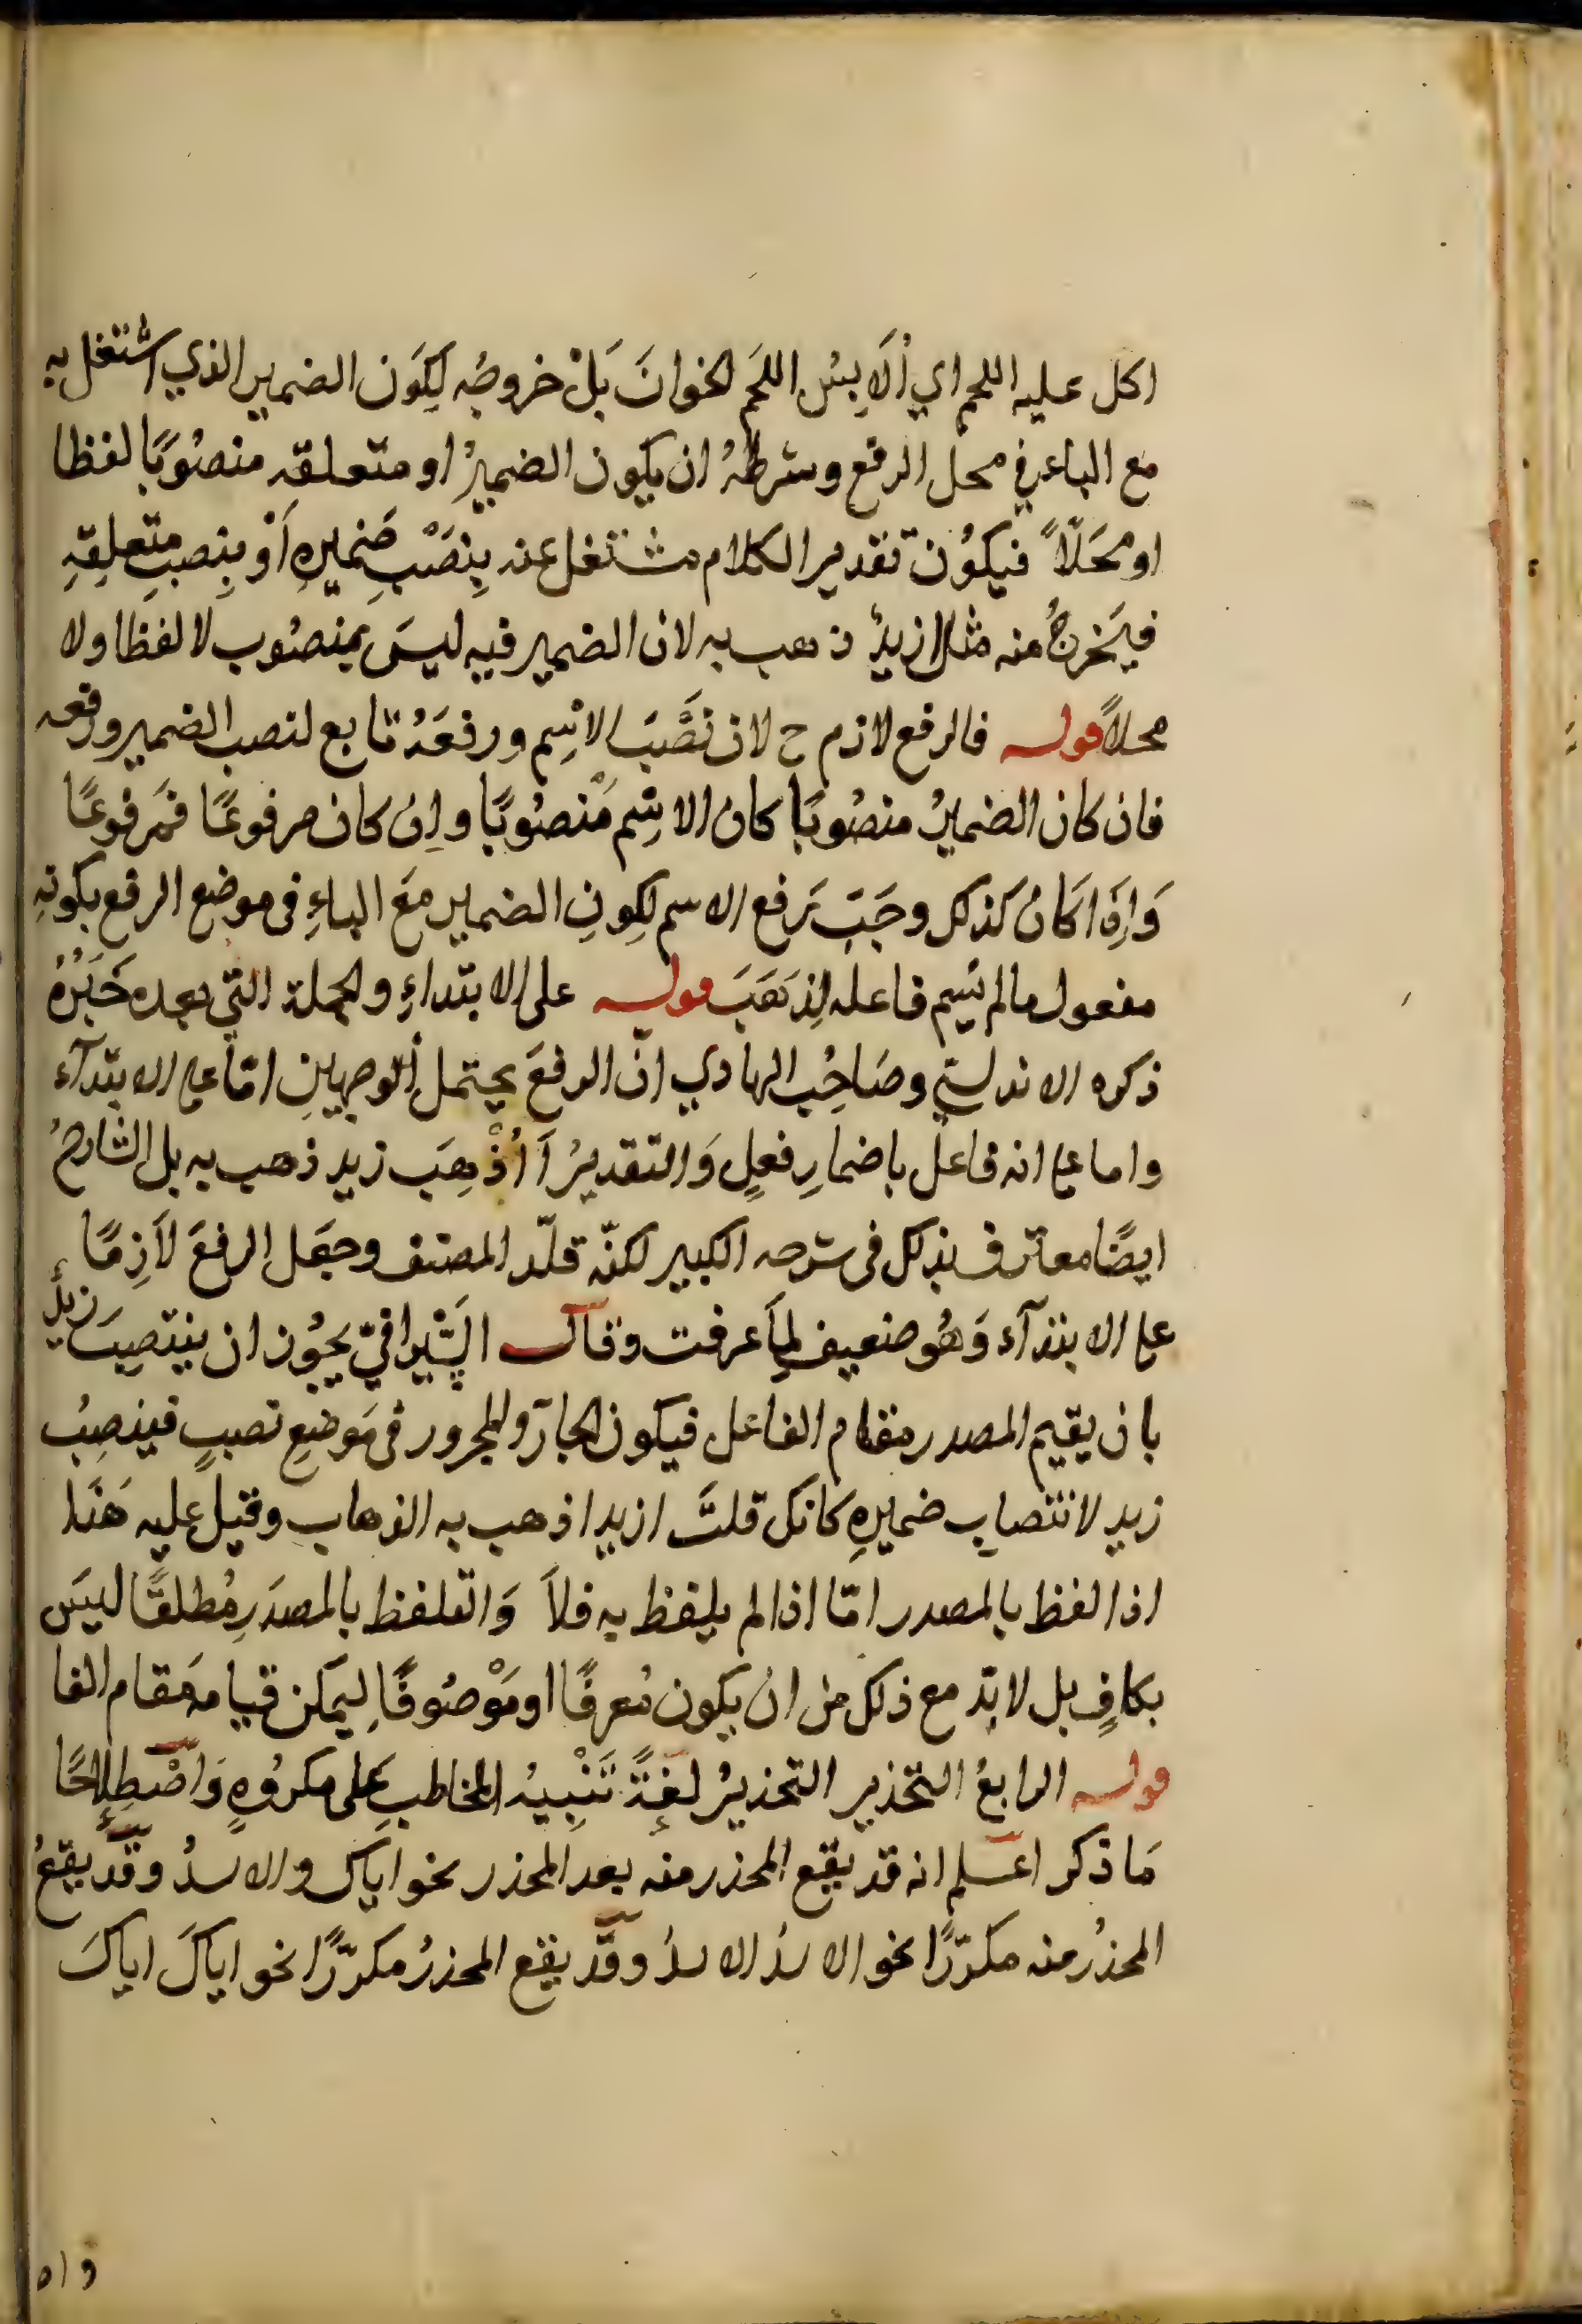 اكل عليه اللحم اي أُلَابِسُ اللحَم الخوانَ بَلْ خروجُه لِكَون الضمير الذي اشتغل به
مع الباء في محل الرفع وشرطهُ ان يكون الضميرُ او متعلقه منصُوبًا لفظا
او محَلّاً فيكُون تقدير الكلام مشتغل عنه بِنصَبْ ضميرِهِ أو بِنصبِ متَعلِقهِ
فيَخرجُ منه مثل ازيدٌ ذهب به لان الضمير فيه ليسَ بمنصُوب لا لفظا ولا
محلاً قوله فالرفع لازم ح لان نَصَّبَ الاسِم ورفعَهُ تابع لنصب الضمير ورفعه
فان كان الضميرُ منصُوبًا كان الاسِم مَنْصُوبًا وإن كان مرفوعًا فمَرفوعًا
وَاِذَا كَانَ كذلك وجَبَ رَفع الاسم لِكونِ الضمير مَعَ الباءِ فى موضع الرفع بكونهِ
مفعول مالم يُسِم فاعله لِذهَبَ قوله على الابتداءِ والجملة التي بعده خَبَرُهُ
ذكره الاندلسيّ وصَاحِبُ الهادي انّ الرفعَ يحتمل الوجهينِ امّا على الابتدآء
واما على انه فاعل باضمارِ فعلٍ وَالتقديرُ أأُذْهِبَ زيد ذهب به بل الشارحُ
ايضًا معترف بذلك فى شرحه الكبير لكنّه قلّد المصنف وجعَل الرفعَ لاَزِمًا
على الابتدآء وَهُو ضعيف لِمَا عرفت وقال السِّيرافيّ يجُوز ان ينتصِبَ زيدٌ
بان يقيم المصدر مقام الفاعل فيكون الجارّ والمجرور فى مَوضعِ نصبٍ فينصِبُ
زيد لانتصابِ ضميرِهِ كانك قلتَ ازيدا ذهب به الذهاب وقيل عليه هَذَا
اذا لفظ بالمصدر امّا اذا لم يلفظ به فلاَ وَالتلفظ بالمصدَرِ مُطلقًا ليسَ
بكافٍ بل لا بدّ مع ذلك من انْ يكون مُعرفًا او مَوْصُوفًا لِيمَكن قيامه مَقام الفا
قوله الرابعُ التحذير التحذيرُ لغةً تَنْبِيهُ المخاطبِ عَلى مكروُهٍ وَاصْطِلاحًا
مَا ذكر اعلم انه قد يقع المحذر منه بعد المحذر نحو اياك والاسدُ وقَد يقعُ
المحذرُ منه مكرّرًا نحو الاسدُ الاسدُ وقَد يقع المحذرُ مكرّرًا نحو اياكَ اياكَ